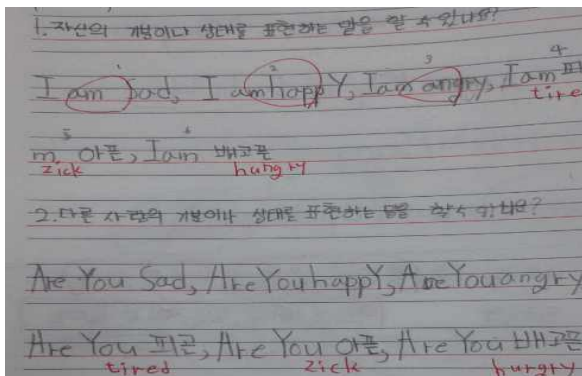 1. 자신의 기분이나 상태를 표현하는 말을 할 수 있나요?
1 2 3 4
I am Sad, I am happY, I am angry, I am 피
tired
5 6
m 아픈, I am 배고픈
zick hungry
2. 다른 사람의 기분이나 상태를 표현하는 말을 할 수 있나요?
Are You Sad, Are You happY, Are You angry
Are You 피곤, Are You 아픈, Are You 배고픈
tired zick hurgry